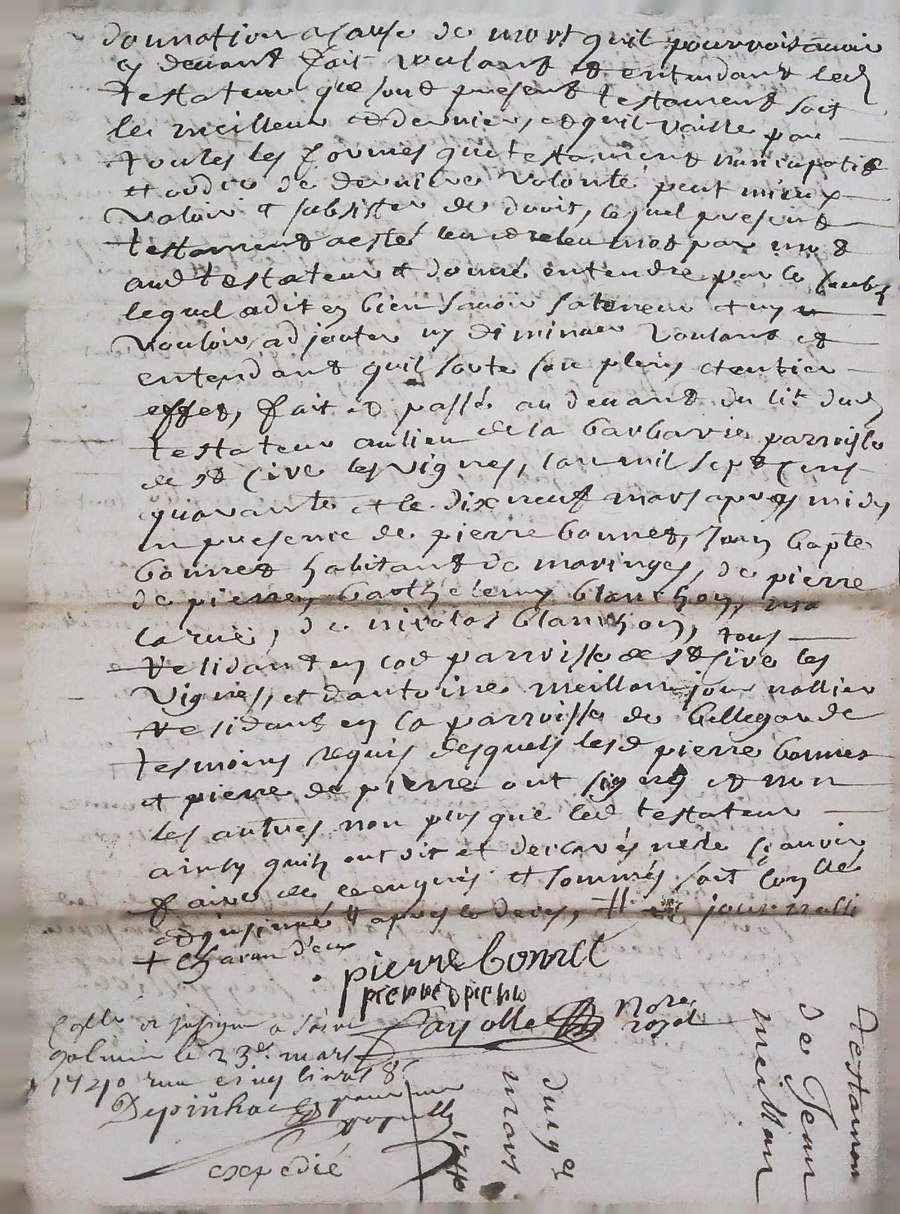 donnation a cause de mort quil pourroit avoir
cy devant fait voulant et entendant led
testateur que sond present testament soit
le meilleur et dernier, et quil vaille par
toutes les formes que testament noncupatif
et ordre de derniere volonté peut mieux
valoir et subsister de droit, lequel present
testament a esté leu et releu mot par mot
aud testateur et donné entendre par le
lequel a dit en bien scavoir sa teneur et ny
vouloir adjouter ny diminuer voulant et
entendant quil sorte son plein et entier
effet, fait et passé au devant du lit dud
testateur au lieu de la barbarie parroisse
de st Cive les vignes, lan mil sept cens
quarante et le dix neuf mars apres midy
en presence de pierre bonnet, Jean bapte
bonnet habitant de maringes, de pierre
de pierre, barthelemy blanchon,
la rue, de nicolas blanchon, tous
residant en lad parroisse de st Cive les
vignes, et dantoine meillan journallier
residant en la parroisse de bellegarde
tesmoins requis desquels lesd pierre bonnet
et pierre de pierre ont signé et non
les autres non plus que led testateur
ainsy quils ont dit et declarés ne le scavoir
faire de ce enquis et sommés soit con lé
et insinué apres le deces,
+ chacun d'eux
pierre bonnet
pierre d pierre
Fayolle Nore royal
Collé et insigné a Saint
galmier le 23e mars
1740 cinq livres
Depinhac
expedié
du 19e
mars
1740
Testament
de Jean
meillan